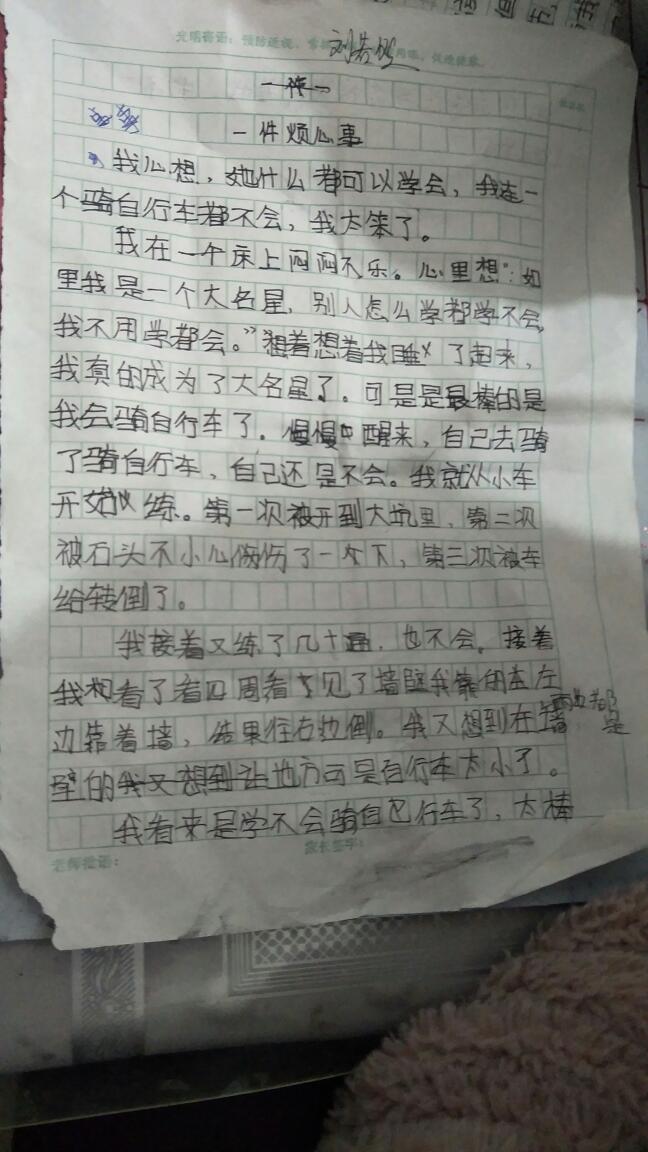 光明寄语：预防近视，
刘若
一件
一件烦心事
我心想，她什么都可以学会，我连一
个骑自行车都不会，我太笨了。
我在一个床上闷闷不乐。心里想“：如
里我是一个大名星，别人怎么学都学不会，
我不用学都会。”想着想着我睡了起来，
我真的成为了大名星了。可是是最棒的是
我会骑自行车了。慢慢中醒来，自己去骑
了骑自行车，自己还是不会。我就从小车
开始练。第一次被开到大坑里，第二次
被石头不小心伤了一个下，第三次被车
给转倒了。
我接着又练了几十遍，也不会。接着
我想看了看四周看见了墙壁我靠的在左
边靠着墙，结果往右边倒。我又想到在墙
两边都是
壁的我又想到让地方可是自行车太小了。
我看来是学不会骑自行车了，太棒
老师批语：
家长签字：